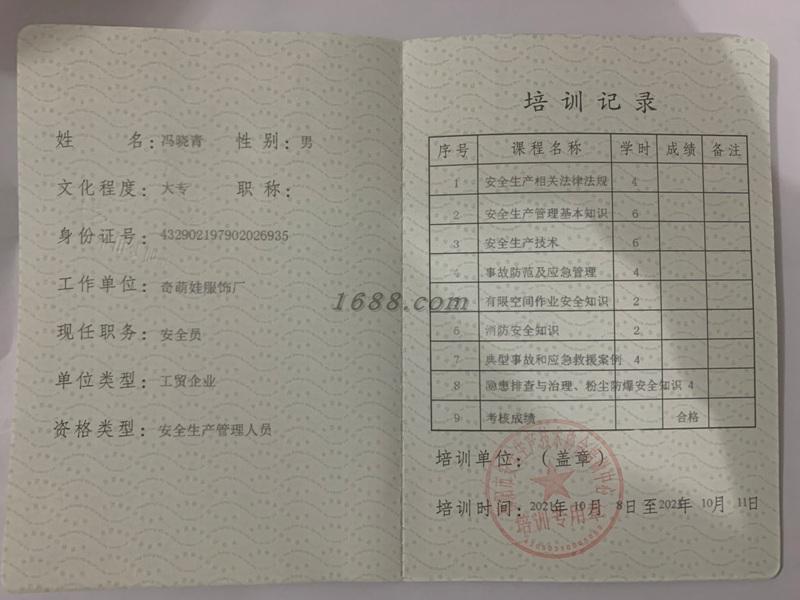 姓 名：冯晓青 性 别：男
文化程度：大专 职 称：
身份证号：432902197902026935
工作单位：奇萌娃服饰厂
现任职务：安全员
单位类型：工贸企业
资格类型：安全生产管理人员
1688.com
培训记录
序号 课程名称 学时 成绩 备注
1 安全生产相关法律法规 4
2 安全生产管理基本知识 6
3 安全生产技术 6
4 事故防范及应急管理 4
有限空间作业安全知识 2
6 消防安全知识 2
7 典型事故和应急救援案例 4
8 隐患排查与治理、粉尘防爆安全知识 4
9 考核成绩 合格
培训单位：（盖章）
培训时间：2021年 10月 8日至2021年 10月 11日
培训专用章